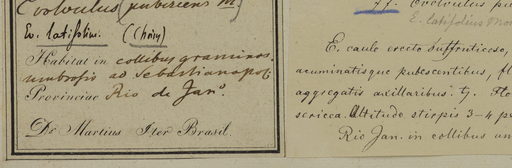 Evolvulus (pubescens M.)
Ev. latifolius. (Choisy)
Habitat in collibus graminos.
umbrosis ad Sebastianopol.
Provinciae Rio de Jano.
Dr Martius Iter Brasil.
E. latifolius
E. caule erecto suffruticoso,
acuminatisque pubescentibus, fl
aggregatis axillaribus. Flo
sericea. Altitudo stirpis 3-4 pe
Rio Jan. in collibus um